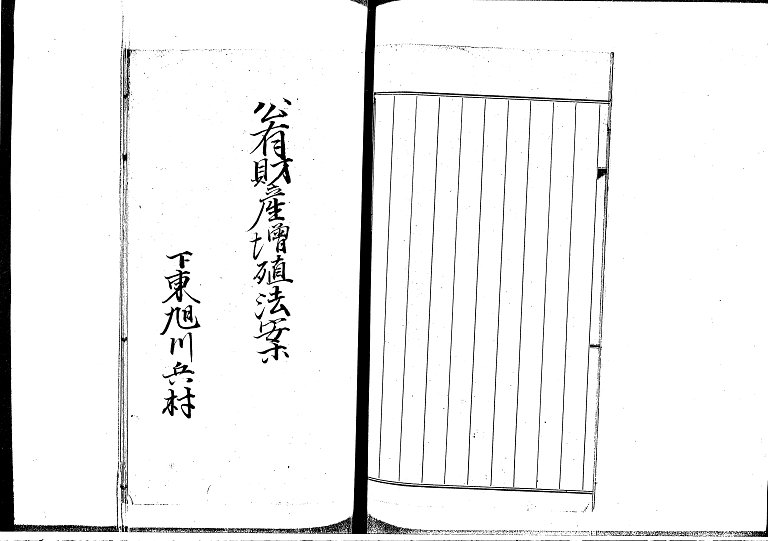 公有財産増殖法案
下東旭川兵村